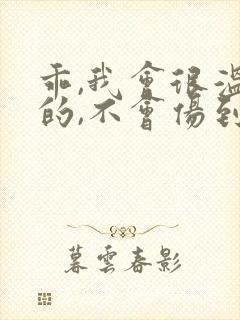 乖,我會很溫
的,不會傷到
暮雲春影